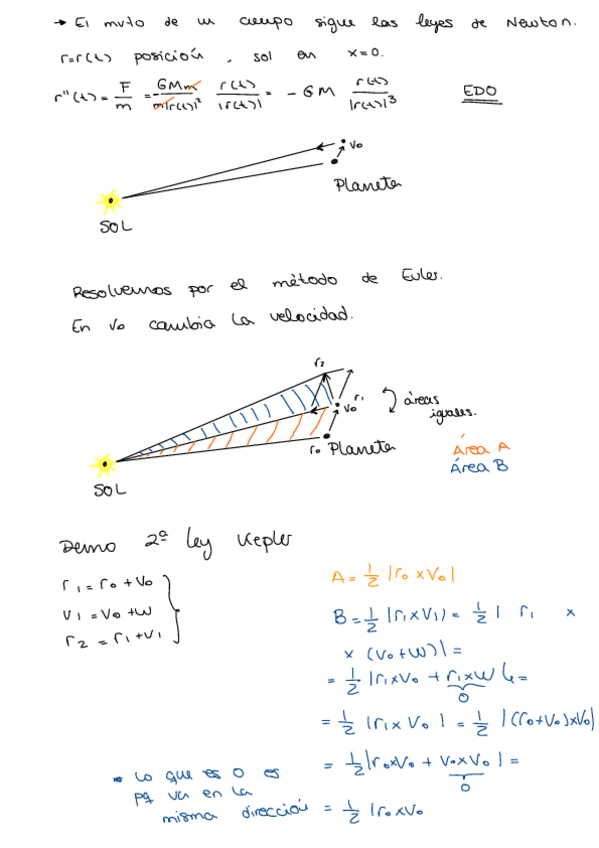 → El mvto de un cuerpo sigue las leyes de Newton.
r=r(t) posición, sol en x=0.
r''(t) = F/m = -GMm/m|r(t)|² r(t)/|r(t)| = -GM r(t)/|r(t)|³ EDO
Vo
Planeta
SOL
Resolvemos por el método de Euler.
En Vo cambia la velocidad.
r2
r1
Vo
áreas
iguales.
ro Planeta
Área A
Área B
SOL
Demo 2ª ley Kepler
r1 = ro + Vo
V1 = Vo + W
r2 = r1 + V1
A = 1/2 |ro x Vo|
B = 1/2 |r1 x V1) = 1/2 | r1 x
x (Vo + W)| =
= 1/2 |r1 x Vo + r1 x W| =
0
= 1/2 |r1 x Vo| = 1/2 |(ro+Vo) x Vo|
= 1/2 |ro x Vo + Vo x Vo| =
0
= 1/2 |ro x Vo
• Lo que es 0 es
pq va en la
misma dirección